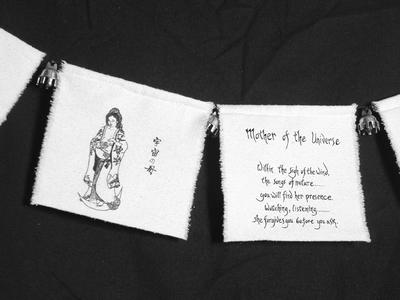 宇宙の母
Mother of the Universe
Within the sigh of the wind,
the songs of nature......
you will find her presence.
Watching, listening......
she forgives you before you ask.